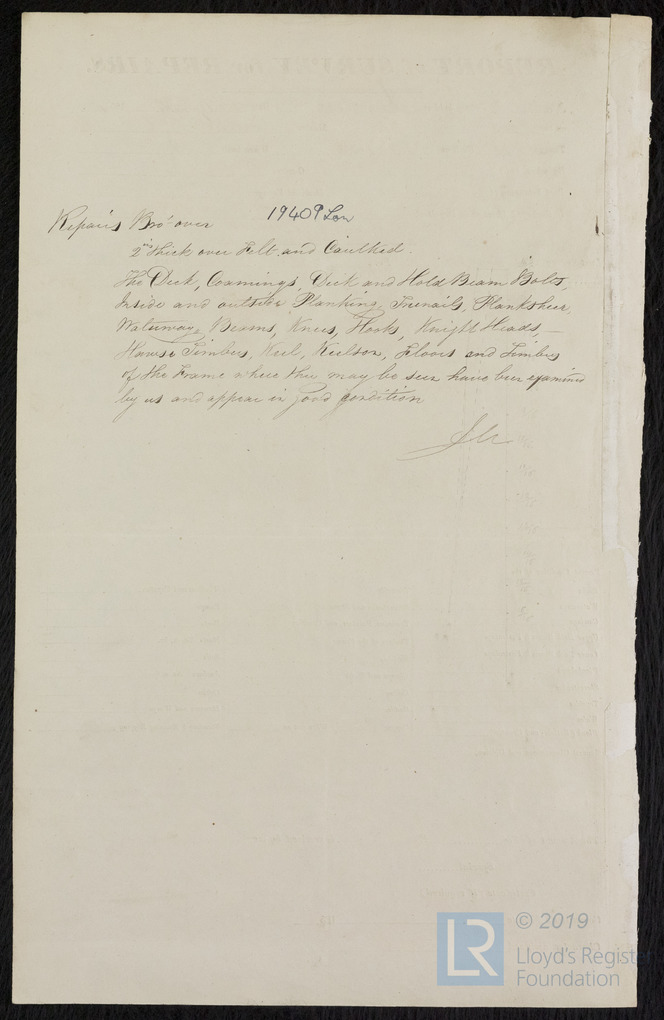 Repairs Bro't over 19409 Lon
2 ins thick over Felt and Caulked.
The Deck, Coamings, Deck and Hold Beam Bolts,
Inside and outside Planking, Treenails, Planksheer,
Waterways, Beams, Knees, Hooks, Knight Heads, –
Hawse Timbers, Keel, Keelson, Floors and Timbers
of the Frame where they may be seen have been examined
by us and appear in good condition
© 2019
LR
Lloyd's Register
Foundation